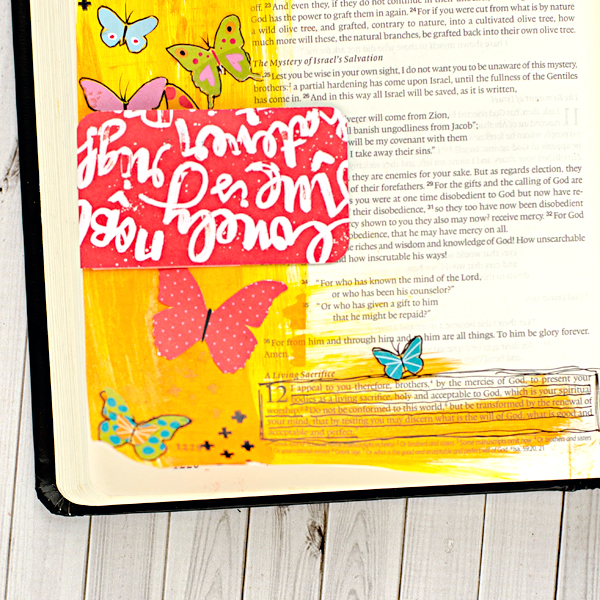 off. 23 And even they, if they do not continue in their
God has the power to graft them in again. 24 For if you were cut from what is by nature
a wild olive tree, and grafted, contrary to nature, into a cultivated olive tree, how
much more will these, the natural branches, be grafted back into their own olive tree.
The Mystery of Israel's Salvation
25 Lest you be wise in your own sight, I do not want you to be unaware of this mystery,
brothers: a partial hardening has come upon Israel, until the fullness of the Gentiles
has come in. 26 And in this way all Israel will be saved, as it is written,
verer will come from Zion,
l banish ungodliness from Jacob";
will be my covenant with them
I take away their sins."
they are enemies for your sake. But as regards election, they
of their forefathers. 29 For the gifts and the calling of God are
s you were at one time disobedient to God but now have re-
their disobedience, 31 so they too have now been disobedient
rcy shown to you they also may now receive mercy. 32 For God
obedience, that he may have mercy on all.
e riches and wisdom and knowledge of God! How unsearchable
d how inscrutable his ways!
lovely nob
true is righ
hatever
34 "For who has known the mind of the Lord,
or who has been his counselor?"
35 "Or who has given a gift to him
that he might be repaid?"
36 For from him and through him and him are all things. To him be glory forever.
Amen.
A Living Sacrifice
12 I appeal to you therefore, brothers, by the mercies of God, to present your
bodies as a living sacrifice, holy and acceptable to God, which is your spiritual
worship. 2 Do not be conformed to this world, but be transformed by the renewal of
your mind, that by testing you may discern what is the will of God, what is good and
acceptable and perfect.